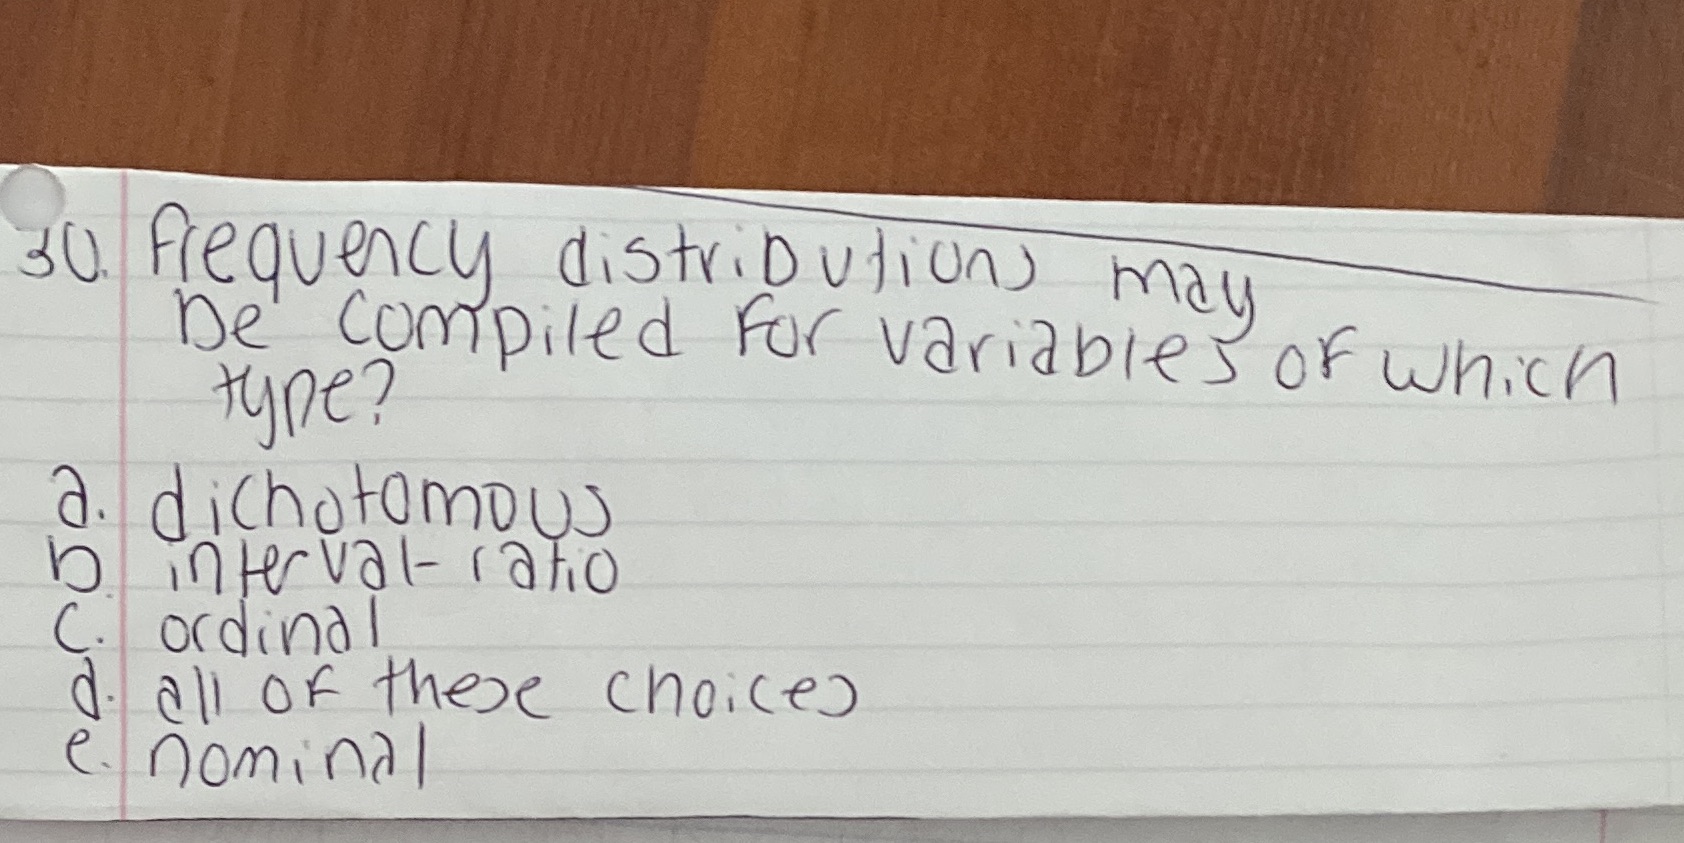 30. frequency distributions may
be compiled for variables of which
type?
a. dichotomous
b. interval-ratio
c. ordinal
d. all of these choices
e. nominal